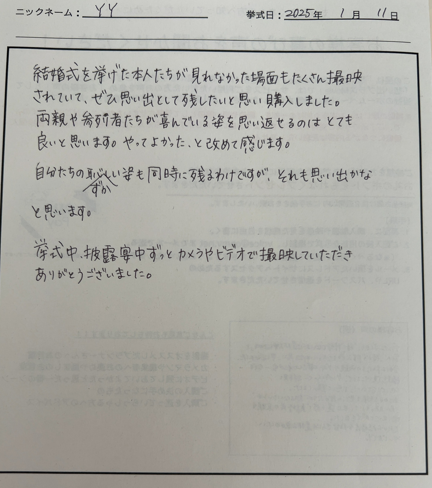 ニックネーム： YY 挙式日：2025年 1月 11日
結婚式を挙げた本人たちが見れなかった場面もたくさん撮映
されていて、ぜひ思い出として残したいと思い購入しました。
両親や参列者たちが喜んでいる姿を思い返せるのはとても
良いと思います。やってよかった、と改めて感じます。
自分たちの恥しい姿も同時に残るわけですが、それも思い出かな
ずか
と思います。
挙式中、披露宴中ずっとカメラやビデオで撮映していただき
ありがとうございました。